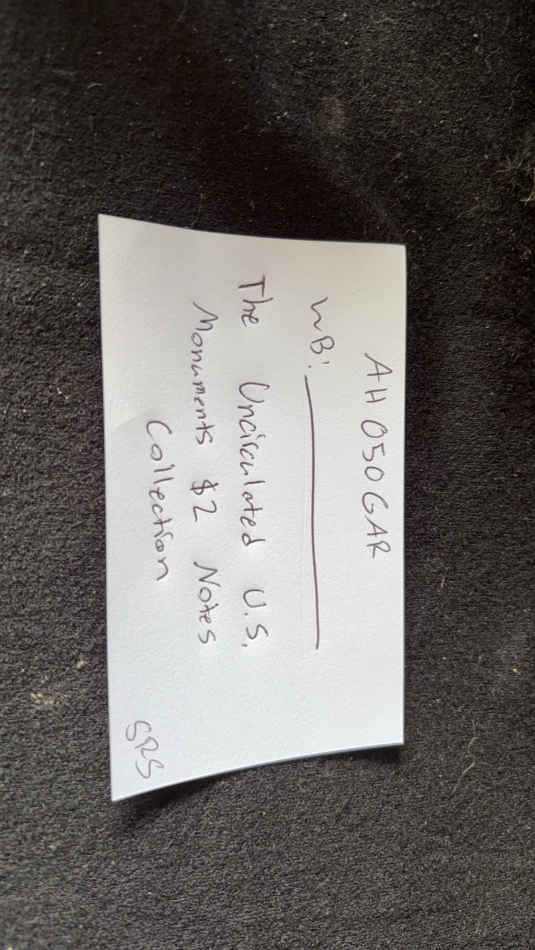 AH050GAR
WB:
The Uncirculated U.S.
Monuments $2 Notes
Collection
SRS